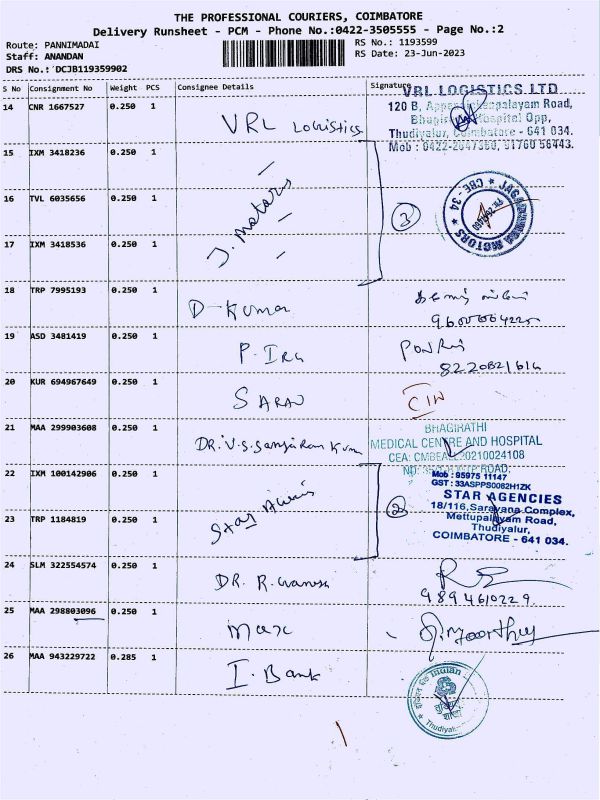 THE PROFESSIONAL COURIERS, COIMBATORE
Delivery Runsheet - PCM - Phone No.:0422-3505555 - Page No.:2
Route: PANNIMADAI RS No.: 1193599
Staff: ANANDAN RS Date: 23-Jun-2023
DRS No.: DCJB119359902
S No Consignment No Weight PCS Consignee Details Signature
14 CNR 1667527 0.250 1 VRL Logistics
VRL LOGISTICS LTD
120 B, Palayam Road,
Hospital Opp,
Thudiyalur, Coimbatore - 641 034.
15 IXM 3418236 0.250 1
16 TVL 6035656 0.250 1 J. Motors 3
MOTORS ★ CBE - 34 ★
17 IXM 3418536 0.250 1
18 TRP 7995193 0.250 1 D-Kumar
19 ASD 3481419 0.250 1
20 KUR 694967649 0.250 1 SARAV
21 MAA 299903608 0.250 1
BHAGIRATHI
MEDICAL CENTRE AND HOSPITAL
22 IXM 100142906 0.250 1 2
Mob : 95975 11147
GST : 33ASPPS0082H1ZK
STAR AGENCIES
18/116, Saravana Complex,
Mettupalayam Road,
Thudiyalur,
COIMBATORE - 641 034.
23 TRP 1184819 0.250 1
24 SLM 322554574 0.250 1 DR. R.
9894610229
25 MAA 298803096 0.250 1
26 MAA 943229722 0.285 1 I. Bank
Indian